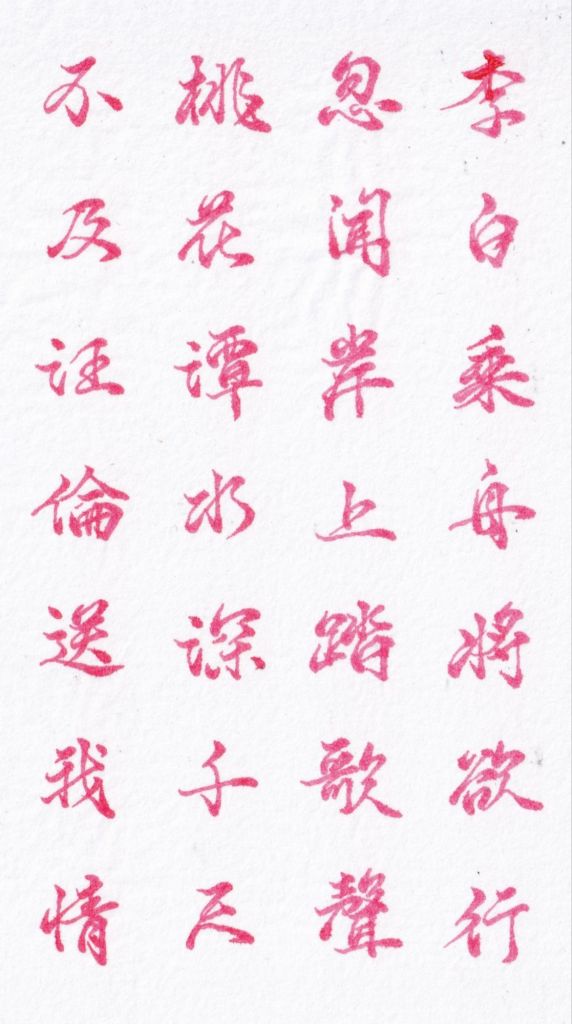 李白乘舟將欲行
忽闻岸上踏歌聲
桃花潭水深千尺
不及汪倫送我情